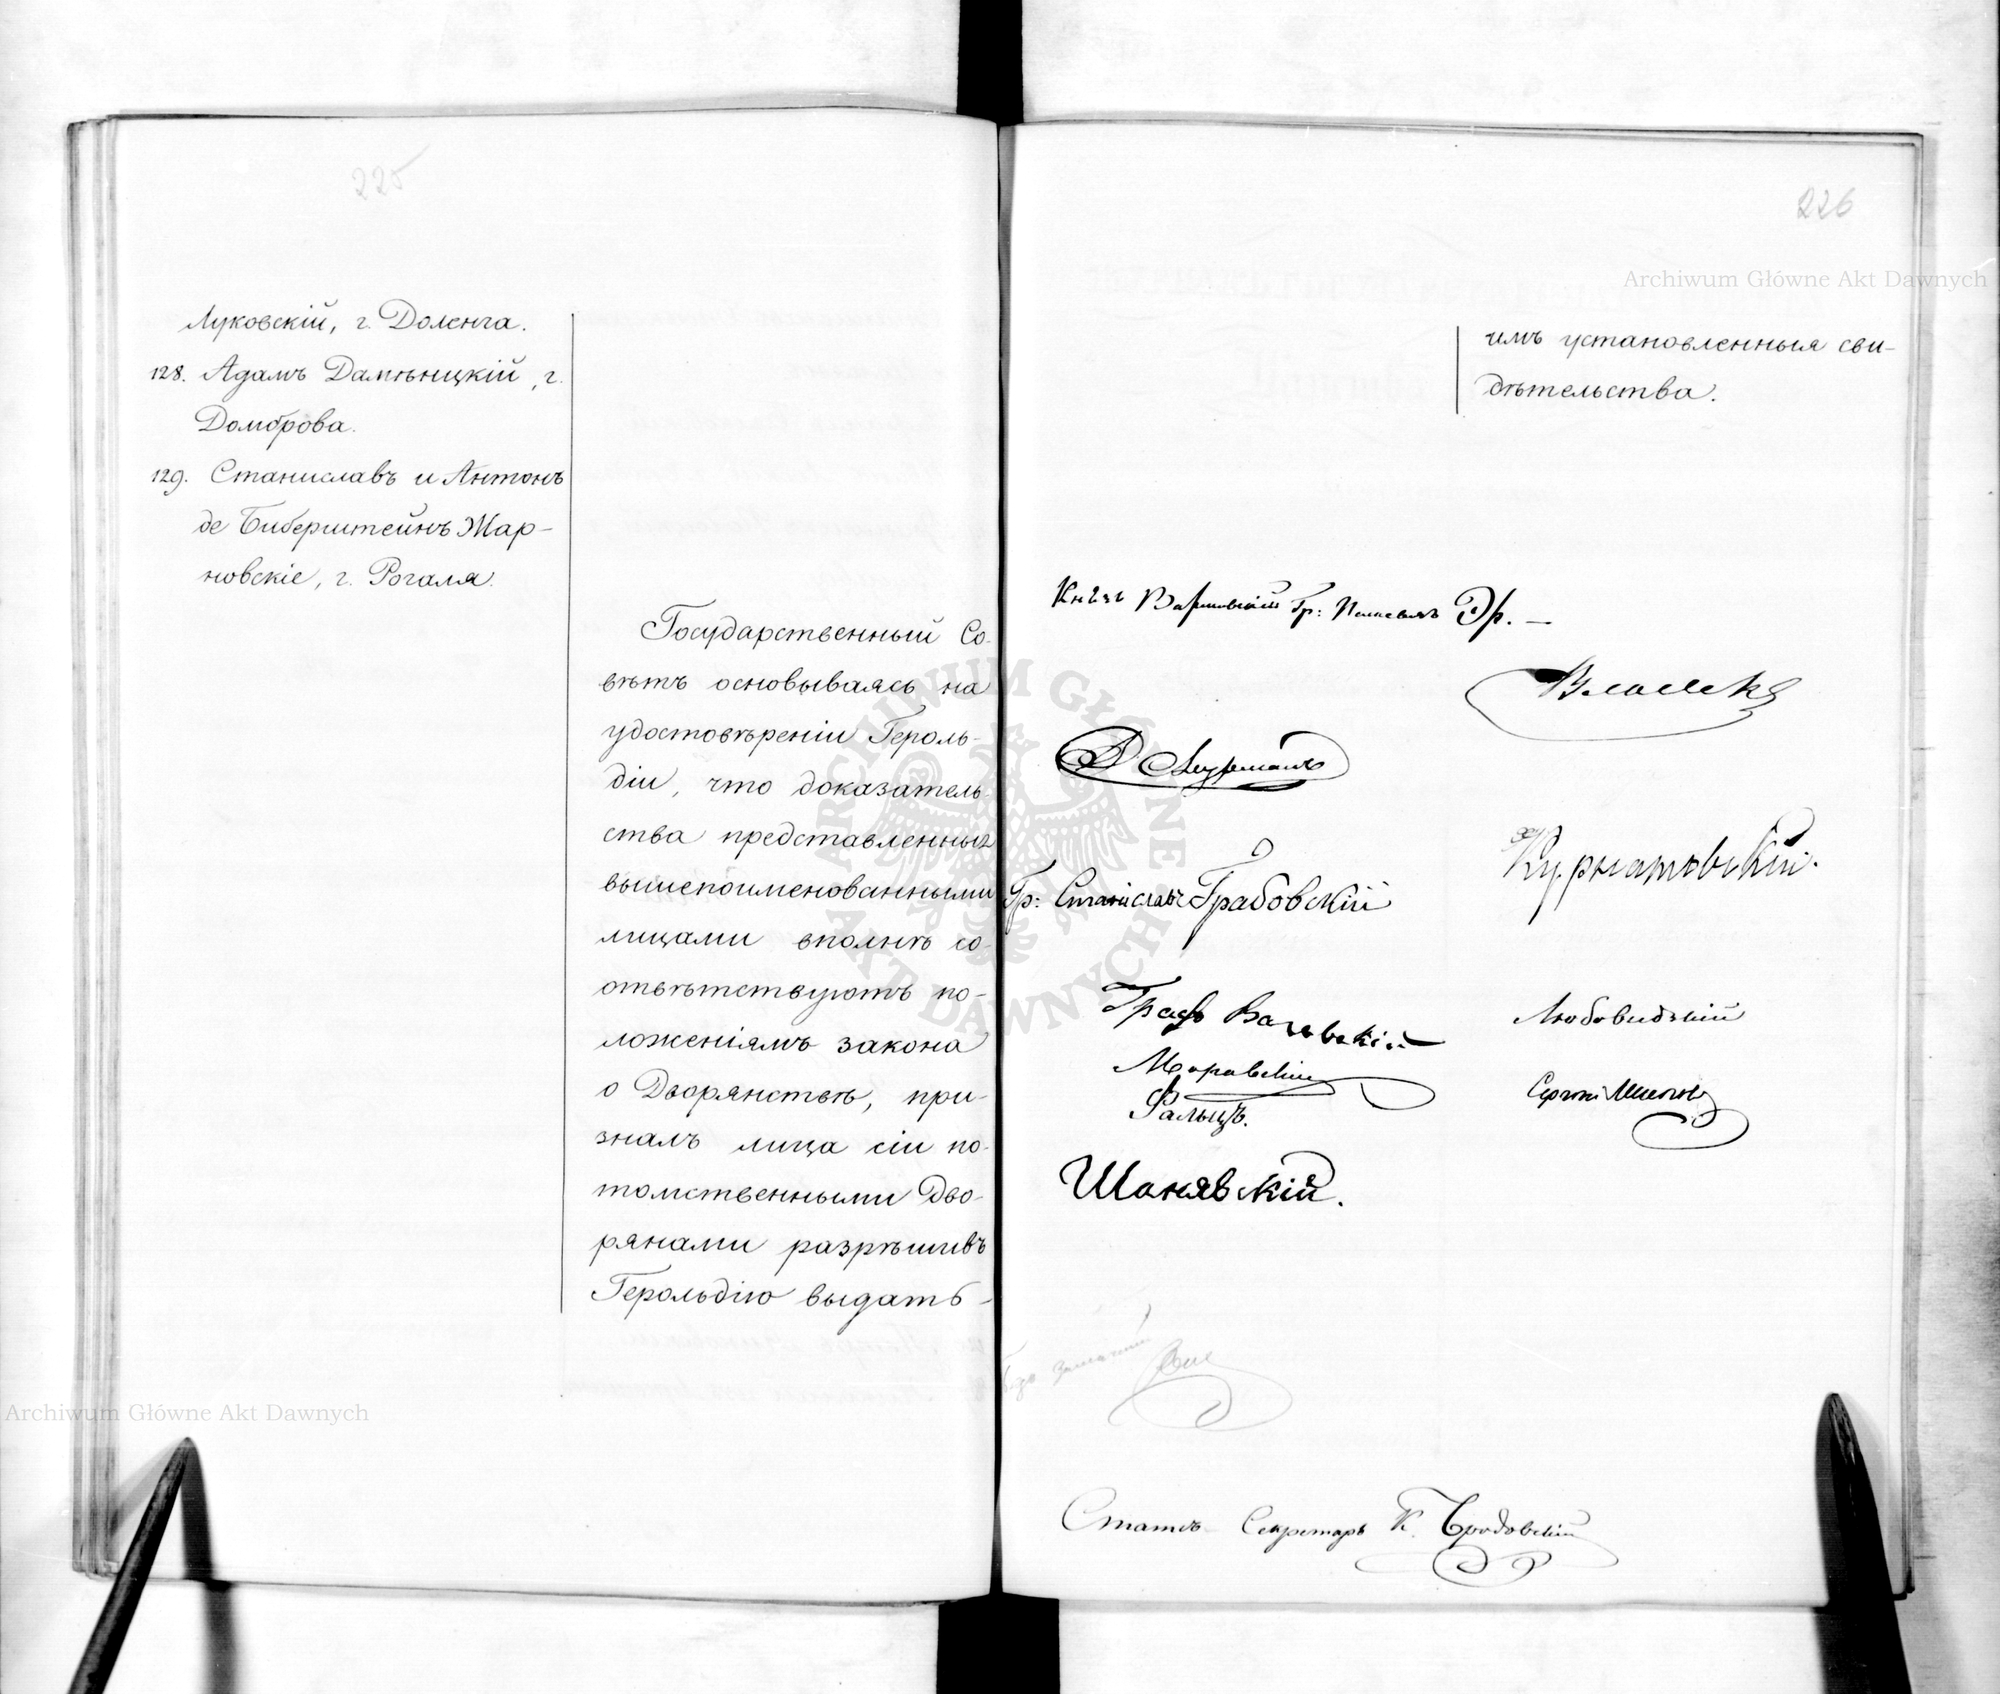 225
Луковскій, г. Доленга.
128. Адамъ Дамѣнцкій, г.
Домброва.
129. Станиславъ и Антонъ
де Биберштейнъ Жар-
новскіе, г. Рогаля.
Государственный Со-
вѣтъ основываясь на
удостовѣреніи Героль-
діи, что доказатель-
ства представленныя
вышепоименованными
лицами вполнѣ со-
отвѣтствуютъ по-
ложеніямъ закона
о Дворянствѣ, при-
зналъ лица сіи по-
томственными Дво-
рянами разрѣшивъ
Герольдію выдать
226
имъ установленныя сви-
дѣтельства.
Князь Варшавскій Гр: Паскевичъ Эр.
Фурманъ
Курнатовскій.
Гр: Станіславъ Грабовскій
Графъ
Любовидзкій
Моравскій
Сергій
Фальцъ.
Шанявскій.
Статсъ Секретарь К. Бродовскій
Archiwum Główne Akt Dawnych
Archiwum Główne Akt Dawnych
ARCHIWUM GŁÓWNE AKT DAWNYCH